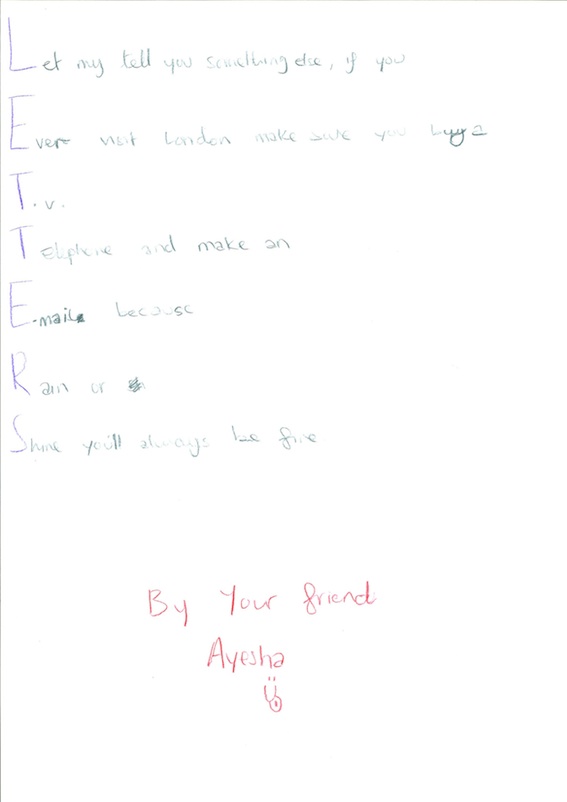 Let my tell you something else, if you
Ever visit London make sure you buy a
T.v.
Telephone and make an
E-mail because
Rain or
Shine you'll always be fine
By Your friend
Ayesha